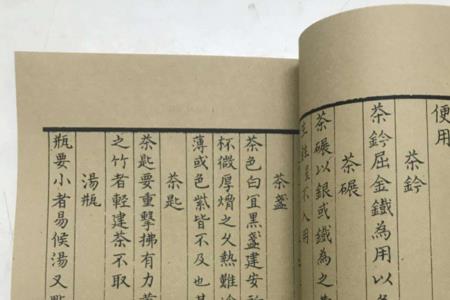 便用
茶鈐
茶鈐屈金鐵為用以
茶碾
茶碾以銀或鐵為之
不入用
茶盞
茶色白宜黑盞建安
杯微厚熁之久熱難
薄或色紫皆不及也其
茶匙
茶匙要重擊拂有力
之竹者輕建茶不取
湯瓶
瓶要小者易候湯又點